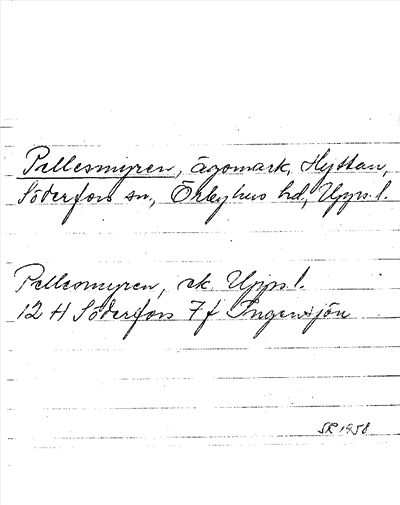 Pellesmyren, ägomark, Hyttan,
Söderfors sn, Örbyhus hd, Upps. l.
Pellesmyren, ek. Upps. l.
12 H Söderfors 7f Ingensjön
SR 1958